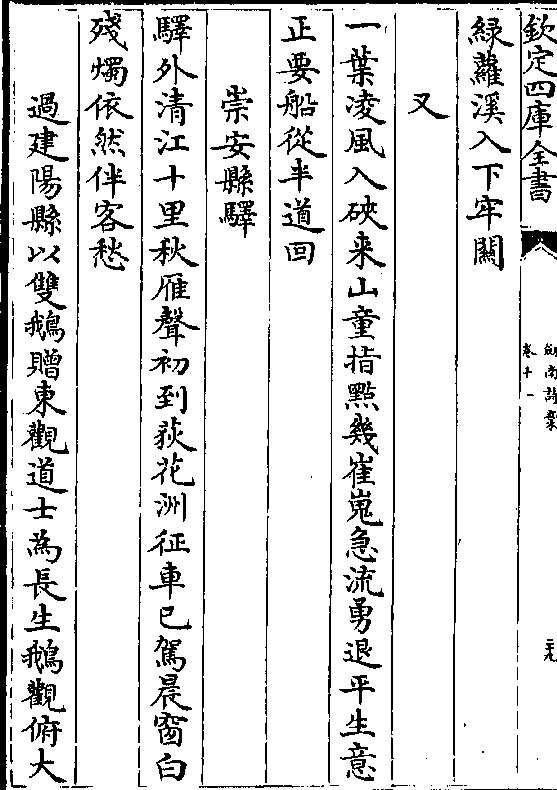 欽定四庫全書
劍南詩稾
卷十一
二九
綠蘿溪入下牢關
又
一葉凌風入硤来山童指㸃幾崔嵬急流勇退平生意
正要船從半道回
崇安縣驛
驛外清江十里秋雁聲初到荻花洲征車已駕晨窗白
殘燭依然伴客愁
過建陽縣以雙鵝贈東觀道士為長生鵝觀俯大